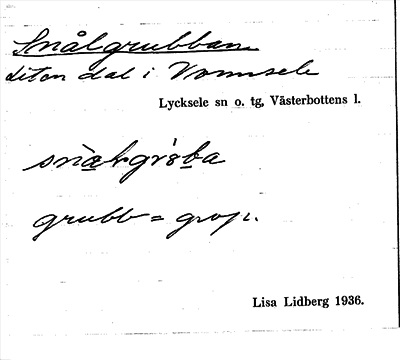 Snålgrubban
liten dal i Vormsele
Lycksele sn o. tg, Västerbottens l.
grubb = grop.
Lisa Lidberg 1936.